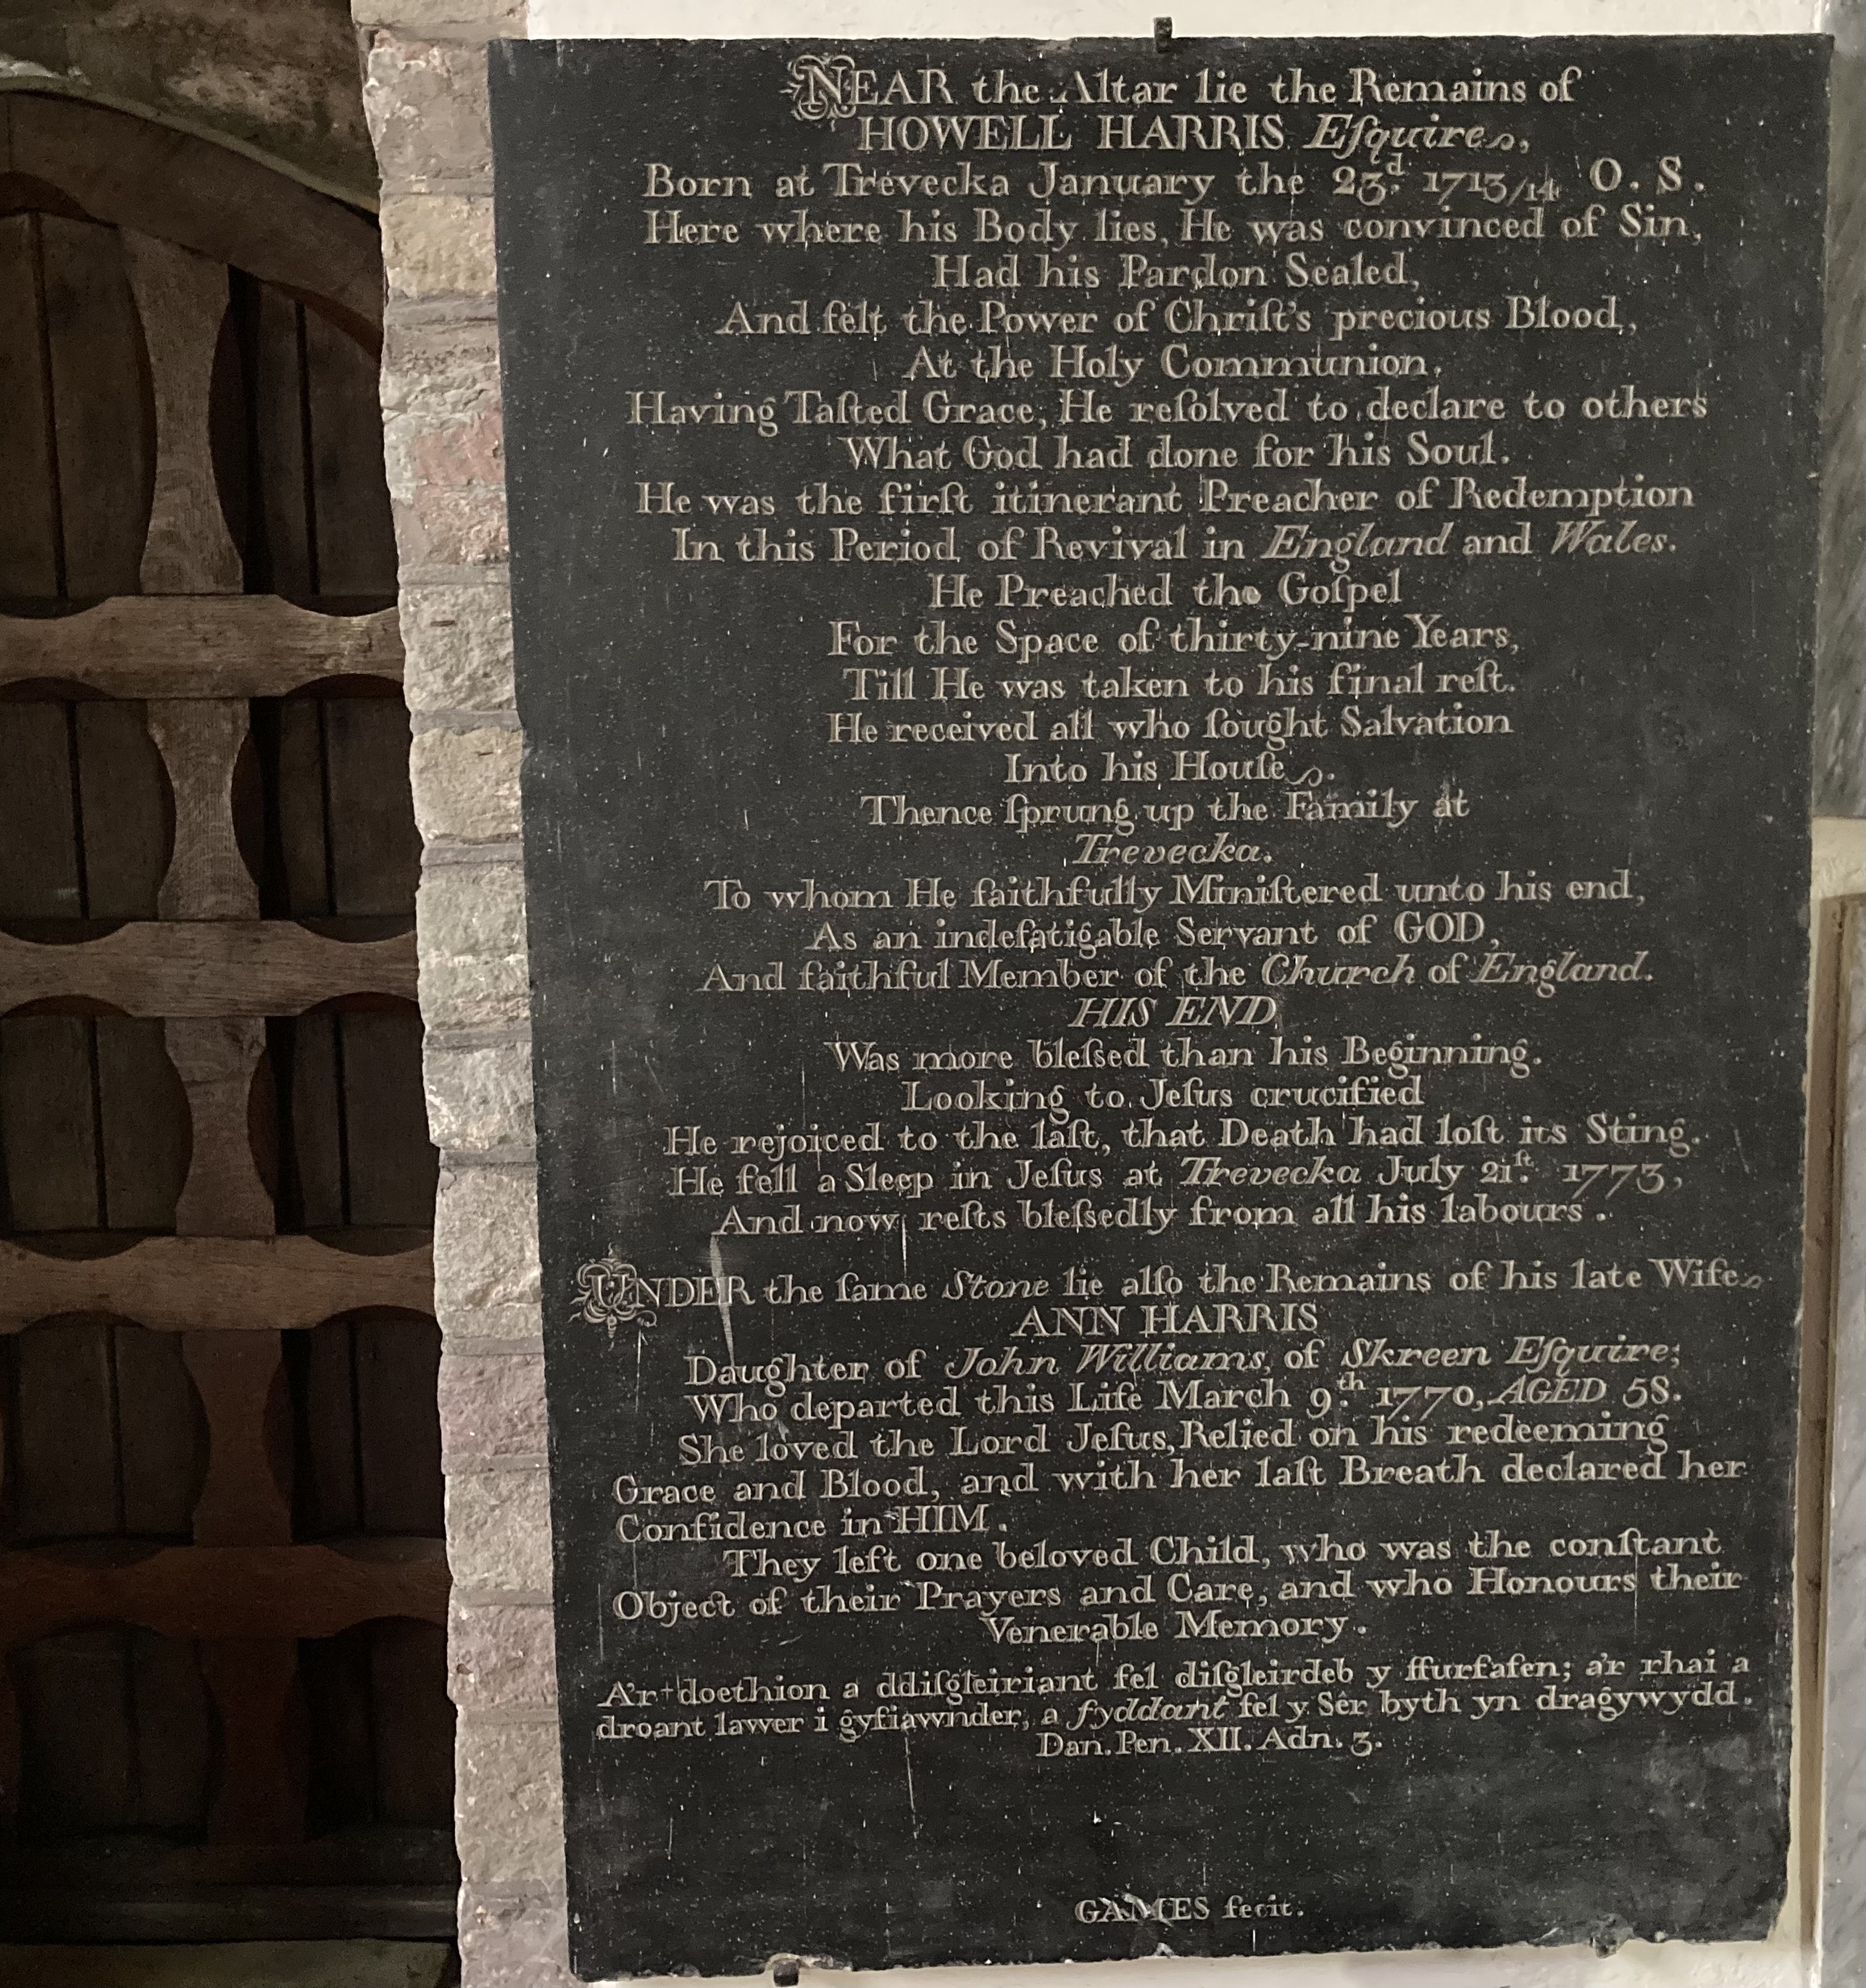 NEAR the Altar lie the Remains of
HOWELL HARRIS Eſquire,
Born at Trevecka January the 23d. 1713/14 O. S.
Here where his Body lies, He was convinced of Sin,
Had his Pardon Sealed,
And felt the Power of Chriſt's precious Blood,
At the Holy Communion.
Having Taſted Grace, He reſolved to declare to others
What God had done for his Soul.
He was the firſt itinerant Preacher of Redemption
In this Period of Revival in England and Wales.
He Preached the Goſpel
For the Space of thirty-nine Years,
Till He was taken to his final reſt.
He received all who ſought Salvation
Into his Houſe.
Thence ſprung up the Family at
Trevecka.
To whom He faithfully Miniſtered unto his end,
As an indefatigable Servant of GOD,
And faithful Member of the Church of England.
HIS END
Was more bleſsed than his Beginning.
Looking to Jeſus crucified
He rejoiced to the laſt, that Death had loſt its Sting.
He fell a Sleep in Jeſus at Trevecka July 21ſt. 1773,
And now reſts bleſsedly from all his labours.
UNDER the ſame Stone lie alſo the Remains of his late Wife
ANN HARRIS
Daughter of John Williams, of Skreen Eſquire;
Who departed this Life March 9th. 1770, AGED 58.
She loved the Lord Jeſus, Relied on his redeeming
Grace and Blood, and with her laſt Breath declared her
Confidence in HIM.
They left one beloved Child, who was the conſtant
Object of their Prayers and Care, and who Honours their
Venerable Memory.
A'r doethion a ddiſgleiriant fel diſgleirdeb y ffurfafen; a'r rhai a
droant lawer i gyfiawnder, a fyddant fel y Sêr byth yn dragywydd.
Dan. Pen. XII. Adn. 3.
GAMES fecit.